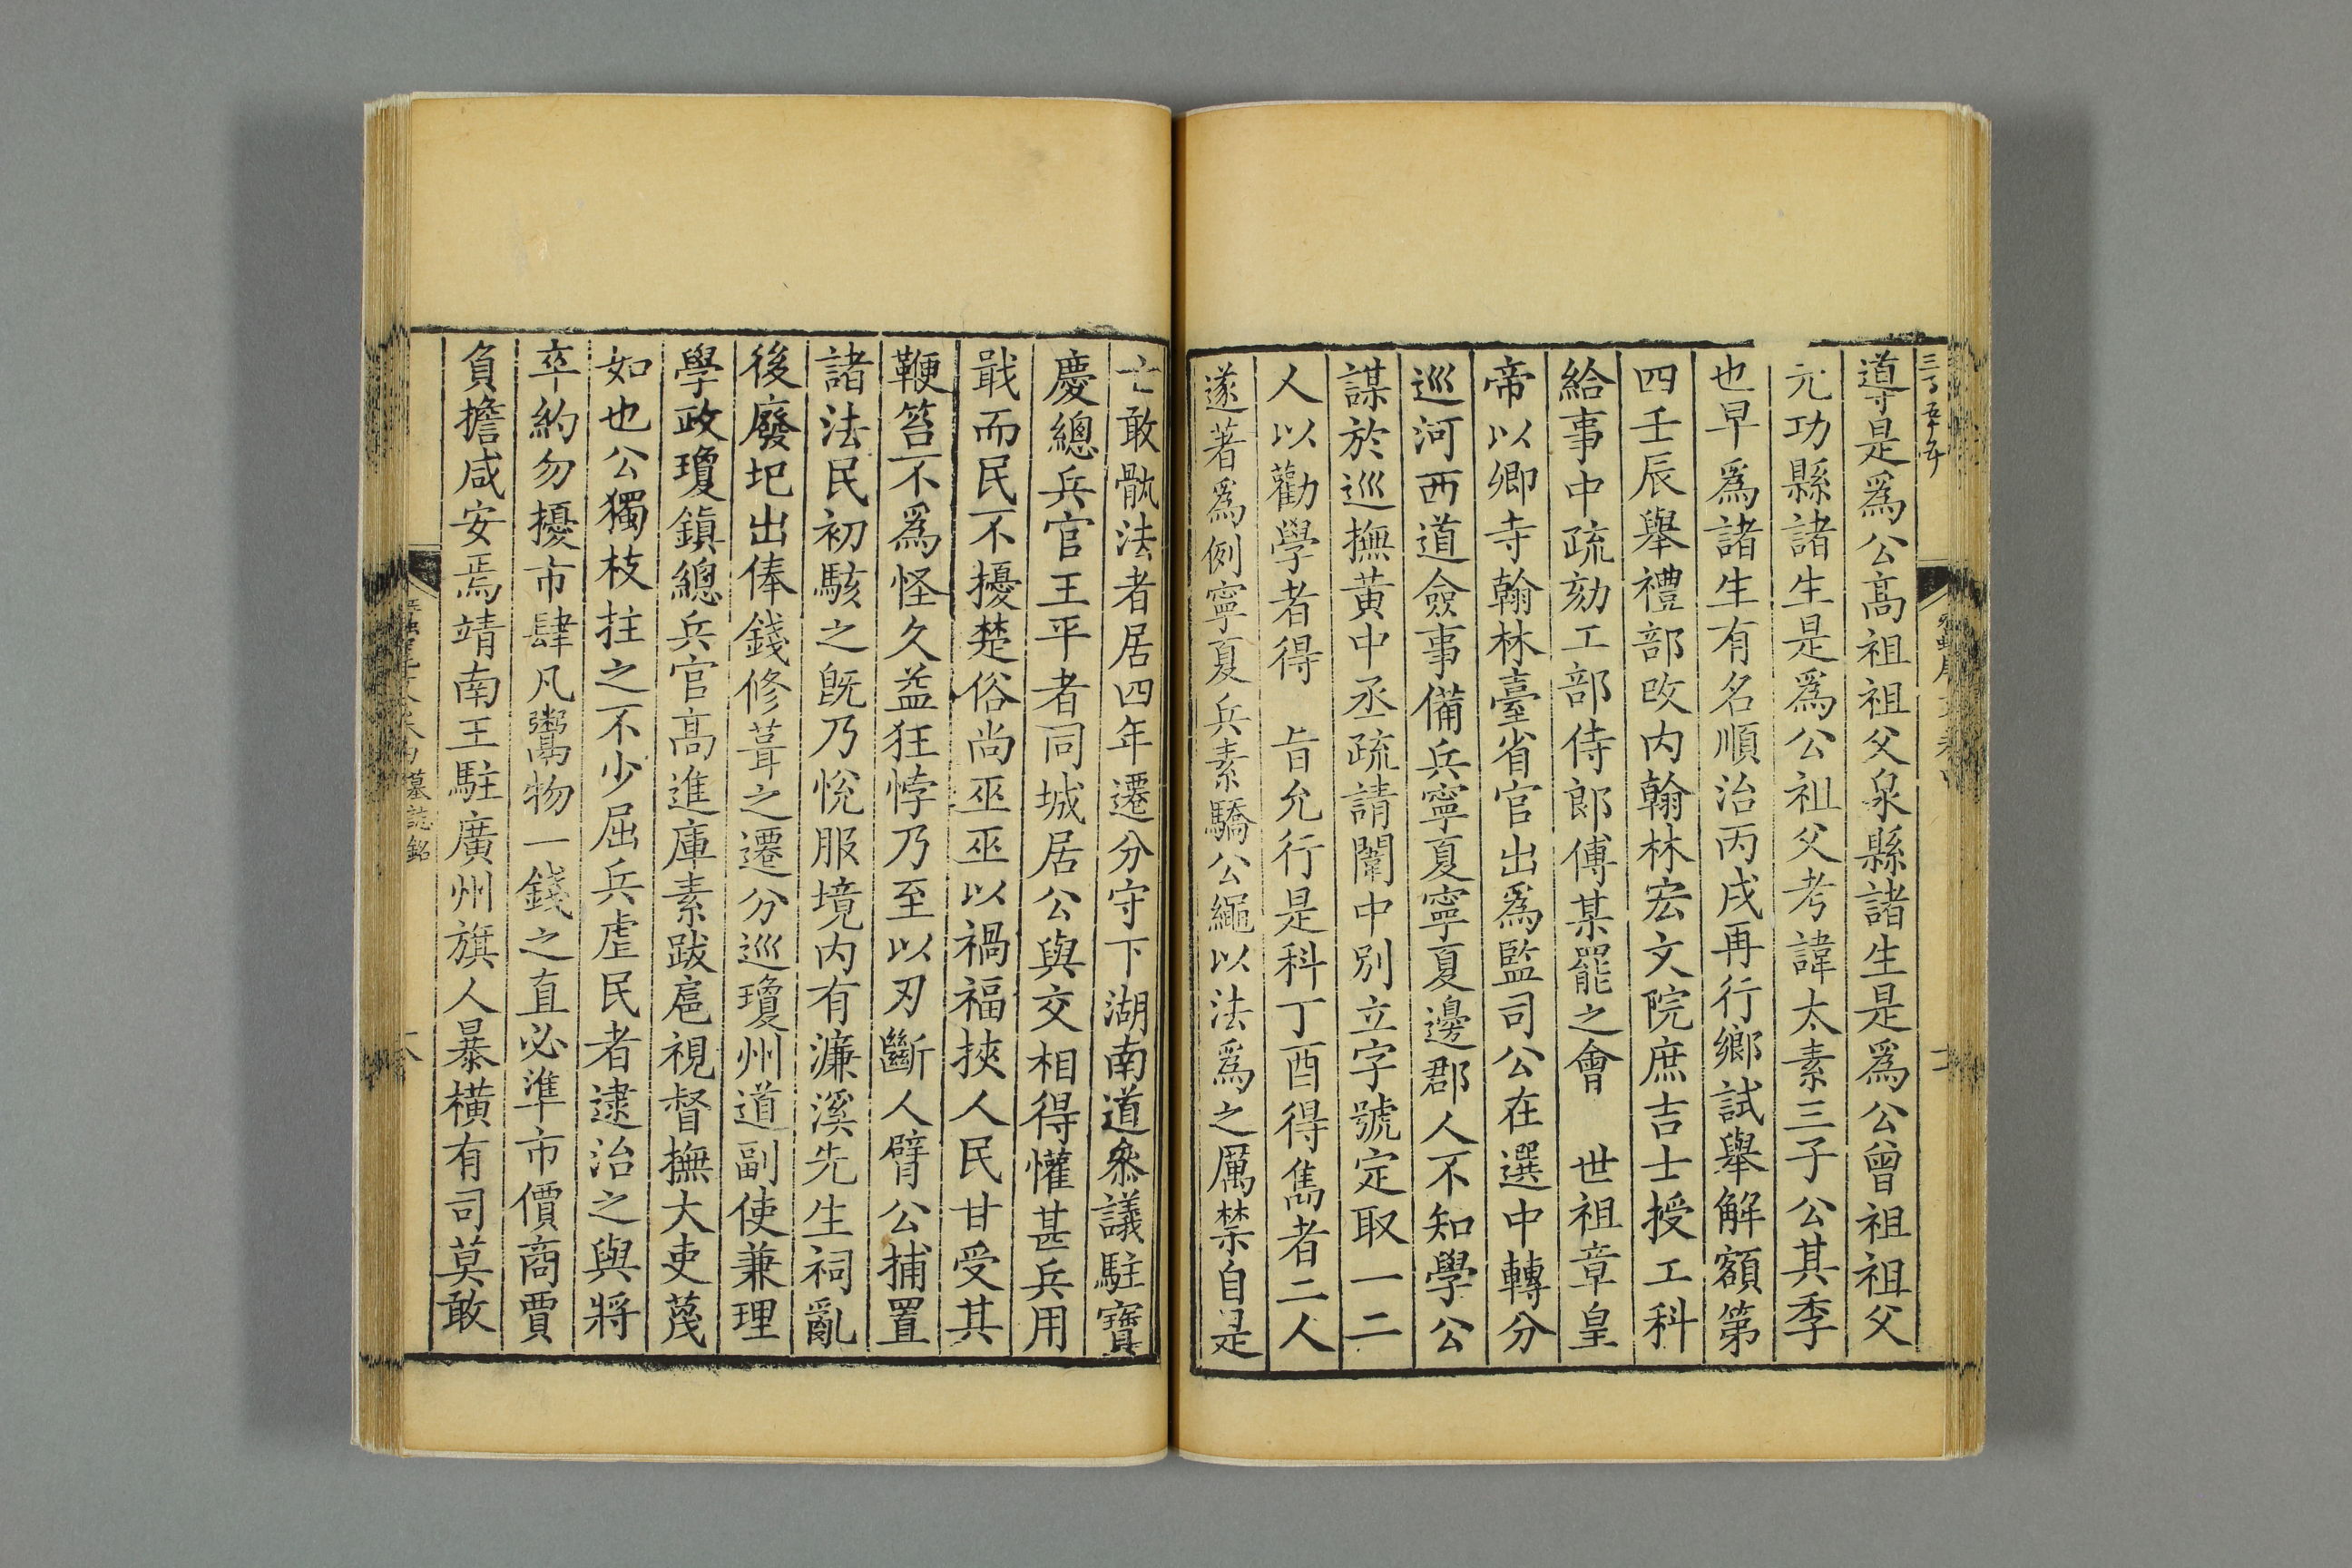 導是爲公高祖祖父泉縣諸生是爲公曾祖祖父
元功縣諸生是爲公祖父考諱太素三子公其季
也早爲諸生有名順治丙戌再行鄉試舉解額第
四壬辰舉禮部改内翰林宏文院庶吉士授工科
給事中疏劾工部侍郎傅某罷之會　世祖章皇
帝以卿寺翰林臺省官出爲監司公在選中轉分
巡河西道僉事備兵寧夏寧夏邊郡人不知學公
謀於巡撫黃中丞疏請闈中別立字號定取一二
人以勸學者得　旨允行是科丁酉得雋者二人
遂著爲例寧夏兵素驕公繩以法爲之厲禁自是
亡敢骫法者居四年遷分守下湖南道叅議駐寶
慶總兵官王平者同城居公與交相得懽甚兵用
戢而民不擾楚俗尚巫巫以禍福挾人民甘受其
鞭笞不爲怪久益狂悖乃至以刃斷人臂公捕置
諸法民初駭之旣乃悅服境内有濂溪先生祠亂
後廢圮出俸錢修葺之遷分巡瓊州道副使兼理
學政瓊鎮總兵官高進庫素跋扈視督撫大吏蔑
如也公獨枝拄之不少屈兵虐民者逮治之與將
卒約勿擾市肆凡鬻物一錢之直必準市價商賈
負擔咸安焉靖南王駐廣州旗人暴橫有司莫敢
墓誌銘